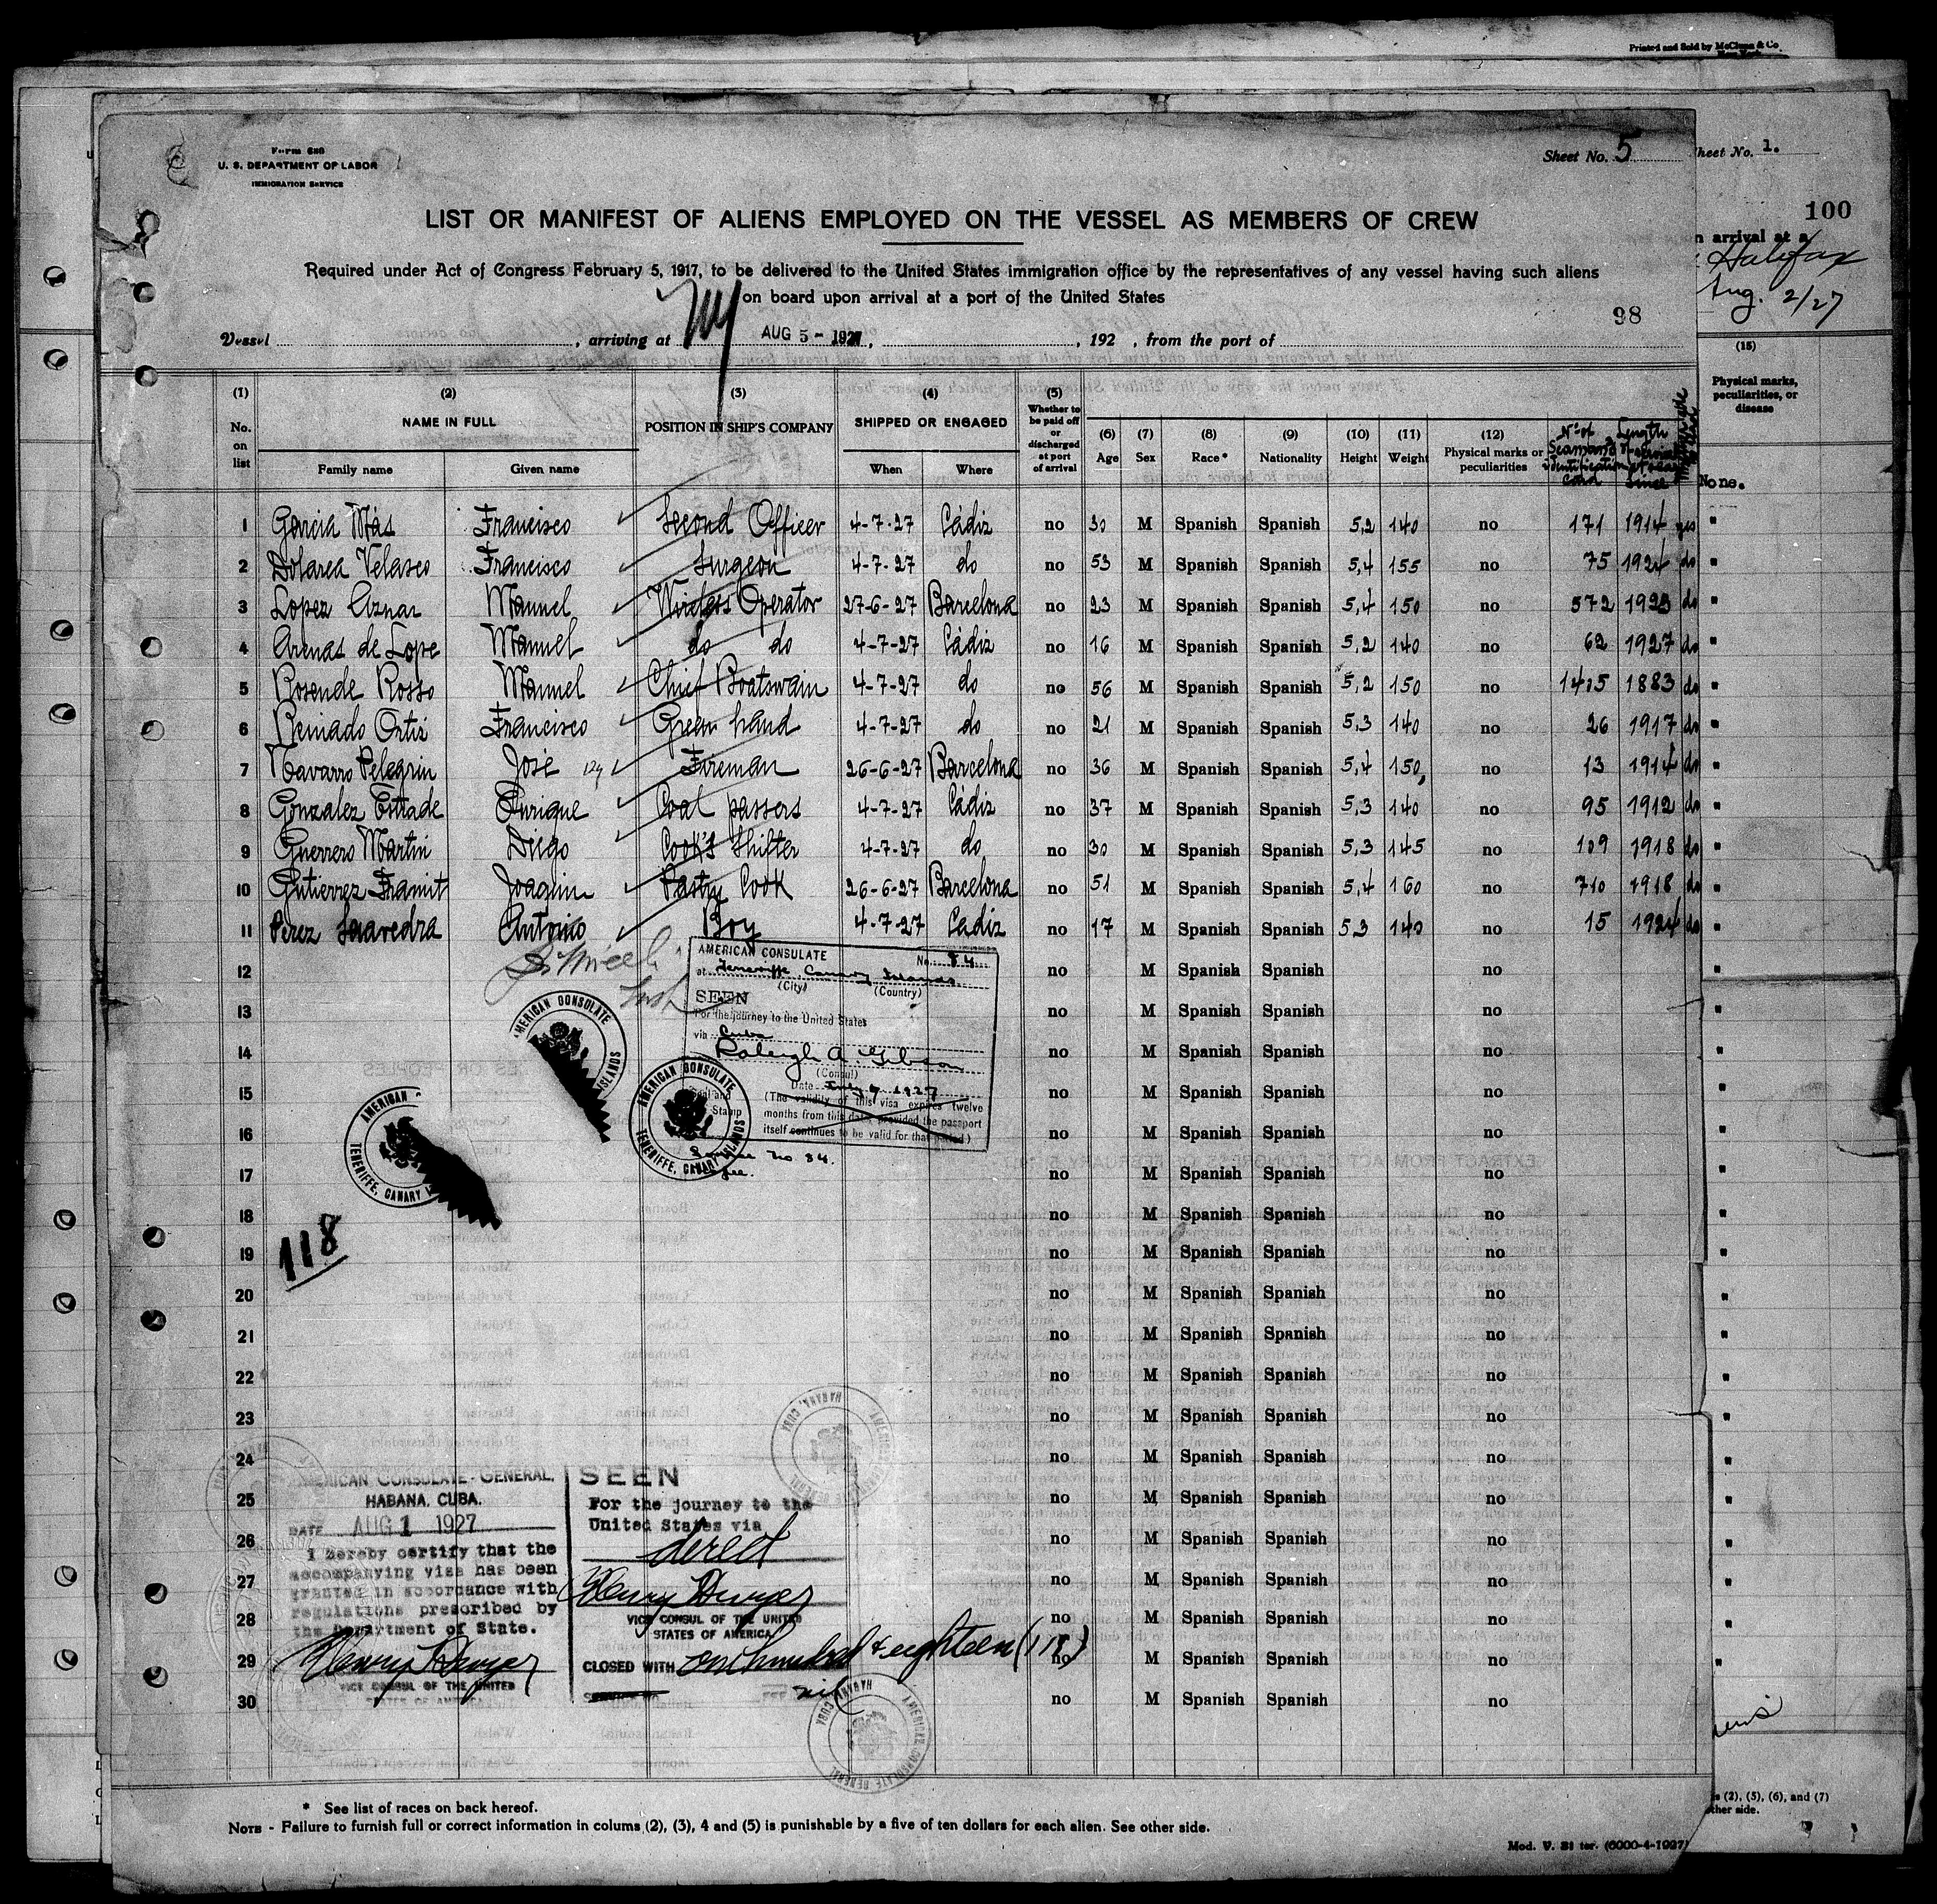 Printed and Sold by McClunn & Co
New York
Form 686
U. S. DEPARTMENT OF LABOR
IMMIGRATION SERVICE
Sheet No. 5
heet No. 1.
100
LIST OR MANIFEST OF ALIENS EMPLOYED ON THE VESSEL AS MEMBERS OF CREW
n arrival at a
Halifax
Aug. 2/27
Required under Act of Congress February 5, 1917, to be delivered to the United States immigration office by the representatives of any vessel having such aliens
on board upon arrival at a port of the United States
98
Vessel , arriving at NY AUG 5 - 1927 , , 192 , from the port of
(1) (2) (3) (4) (5) (15)
No. on list NAME IN FULL POSITION IN SHIP'S COMPANY SHIPPED OR ENGAGED Whether to be paid off or discharged at port of arrival Physical marks, peculiarities, or disease
Family name Given name When Where (6) Age (7) Sex (8) Race* (9) Nationality (10) Height (11) Weight (12) Physical marks or peculiarities Nº of Seaman's identification card Length of service at sea since
None.
1 Garcia Más Francisco Second Officer 4-7-27 Cádiz no 30 M Spanish Spanish 5,2 140 no 171 1914 yes "
2 Dolarea Velasco Francisco Surgeon 4-7-27 do no 53 M Spanish Spanish 5,4 155 no 75 1924 do "
3 Lopez Aznar Manuel Wireless Operator 27-6-27 Barcelona no 23 M Spanish Spanish 5,4 150 no 572 1923 do "
4 Arenas de Lope Manuel do do 4-7-27 Cádiz no 16 M Spanish Spanish 5,2 140 no 62 1927 do "
5 Rosende Rosso Manuel Chief Boatswain 4-7-27 do no 56 M Spanish Spanish 5,2 150 no 1405 1883 do "
6 Reinado Ortiz Francisco Green hand 4-7-27 do no 21 M Spanish Spanish 5,3 140 no 26 1917 do "
7 Navarro Pelegrin José Fireman 26-6-27 Barcelona no 36 M Spanish Spanish 5,4 150 no 13 1914 do "
8 Gonzalez Estrade Enrique Coal passers 4-7-27 Cádiz no 37 M Spanish Spanish 5,3 140 no 95 1912 do "
9 Guerrero Martin Diego Cook's Shifter 4-7-27 do no 30 M Spanish Spanish 5,3 145 no 109 1918 do "
10 Gutierrez Framit Joaquin Pastry Cook 26-6-27 Barcelona no 51 M Spanish Spanish 5,4 160 no 710 1918 do "
11 Perez Saavedra Antonio Boy 4-7-27 Cadiz no 17 M Spanish Spanish 5 3 140 no 15 1924 do "
12 no M Spanish Spanish no "
13 no M Spanish Spanish no "
14 no M Spanish Spanish no "
15 no M Spanish Spanish no "
16 no M Spanish Spanish no "
17 no M Spanish Spanish no "
18 no M Spanish Spanish no "
19 no M Spanish Spanish no "
20 no M Spanish Spanish no "
21 no M Spanish Spanish no "
22 no M Spanish Spanish no "
23 no M Spanish Spanish no "
24 no M Spanish Spanish no "
25 no M Spanish Spanish no "
26 no M Spanish Spanish no "
27 no M Spanish Spanish no "
28 no M Spanish Spanish no "
29 no M Spanish Spanish no "
30 no M Spanish Spanish no
AMERICAN CONSULATE No. 84
at Teneriffe, Canary Islands
(City) (Country)
SEEN
For the journey to the United States
via Cuba
Raleigh A. Gibson
(Consul)
Date July 7 1927
(The validity of this visa expires twelve
months from this date, provided the passport
itself continues to be valid for that period)
Seal and
Stamp
Service No. 84.
AMERICAN CONSULATE
ISLANDS
AMERICAN CONSULATE
TENERIFFE, CANARY ISLANDS
AMERICAN
TENERIFFE, CANARY
118
AMERICAN CONSULATE-GENERAL,
HABANA, CUBA.
DATE AUG 1 1927
I hereby certify that the
accompanying visa has been
granted in accordance with
regulations prescribed by
the Department of State.
Henry Dwyer
VICE CONSUL OF THE UNITED
STATES OF AMERICA
SEEN
For the journey to the
United States via
direct
Henry Dwyer
VICE CONSUL OF THE UNITED
STATES OF AMERICA
CLOSED WITH one hundred & eighteen (118)
AMERICAN CONSULATE GENERAL
HABANA, CUBA
AMERICAN CONSULATE GENERAL
HABANA CUBA
* See list of races on back hereof.
NOTE - Failure to furnish full or correct information in colums (2), (3), 4 and (5) is punishable by a five of ten dollars for each alien. See other side.
Mod. V. 81 ter. (6000-4-1927)
s (2), (5), (6), and (7)
other side.